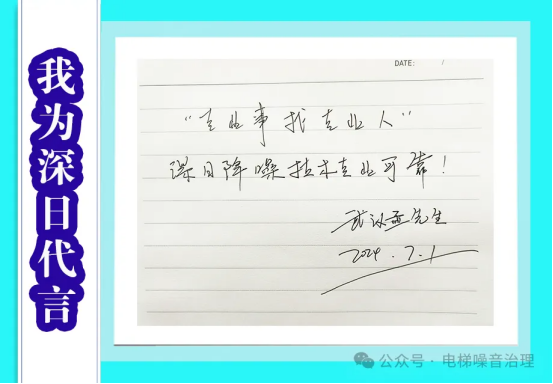 我为深日代言
DATE: /
“专业事找专业人”
深日降噪技术专业可靠！
武 先生
2024.7.1
公众号 · 电梯噪音治理